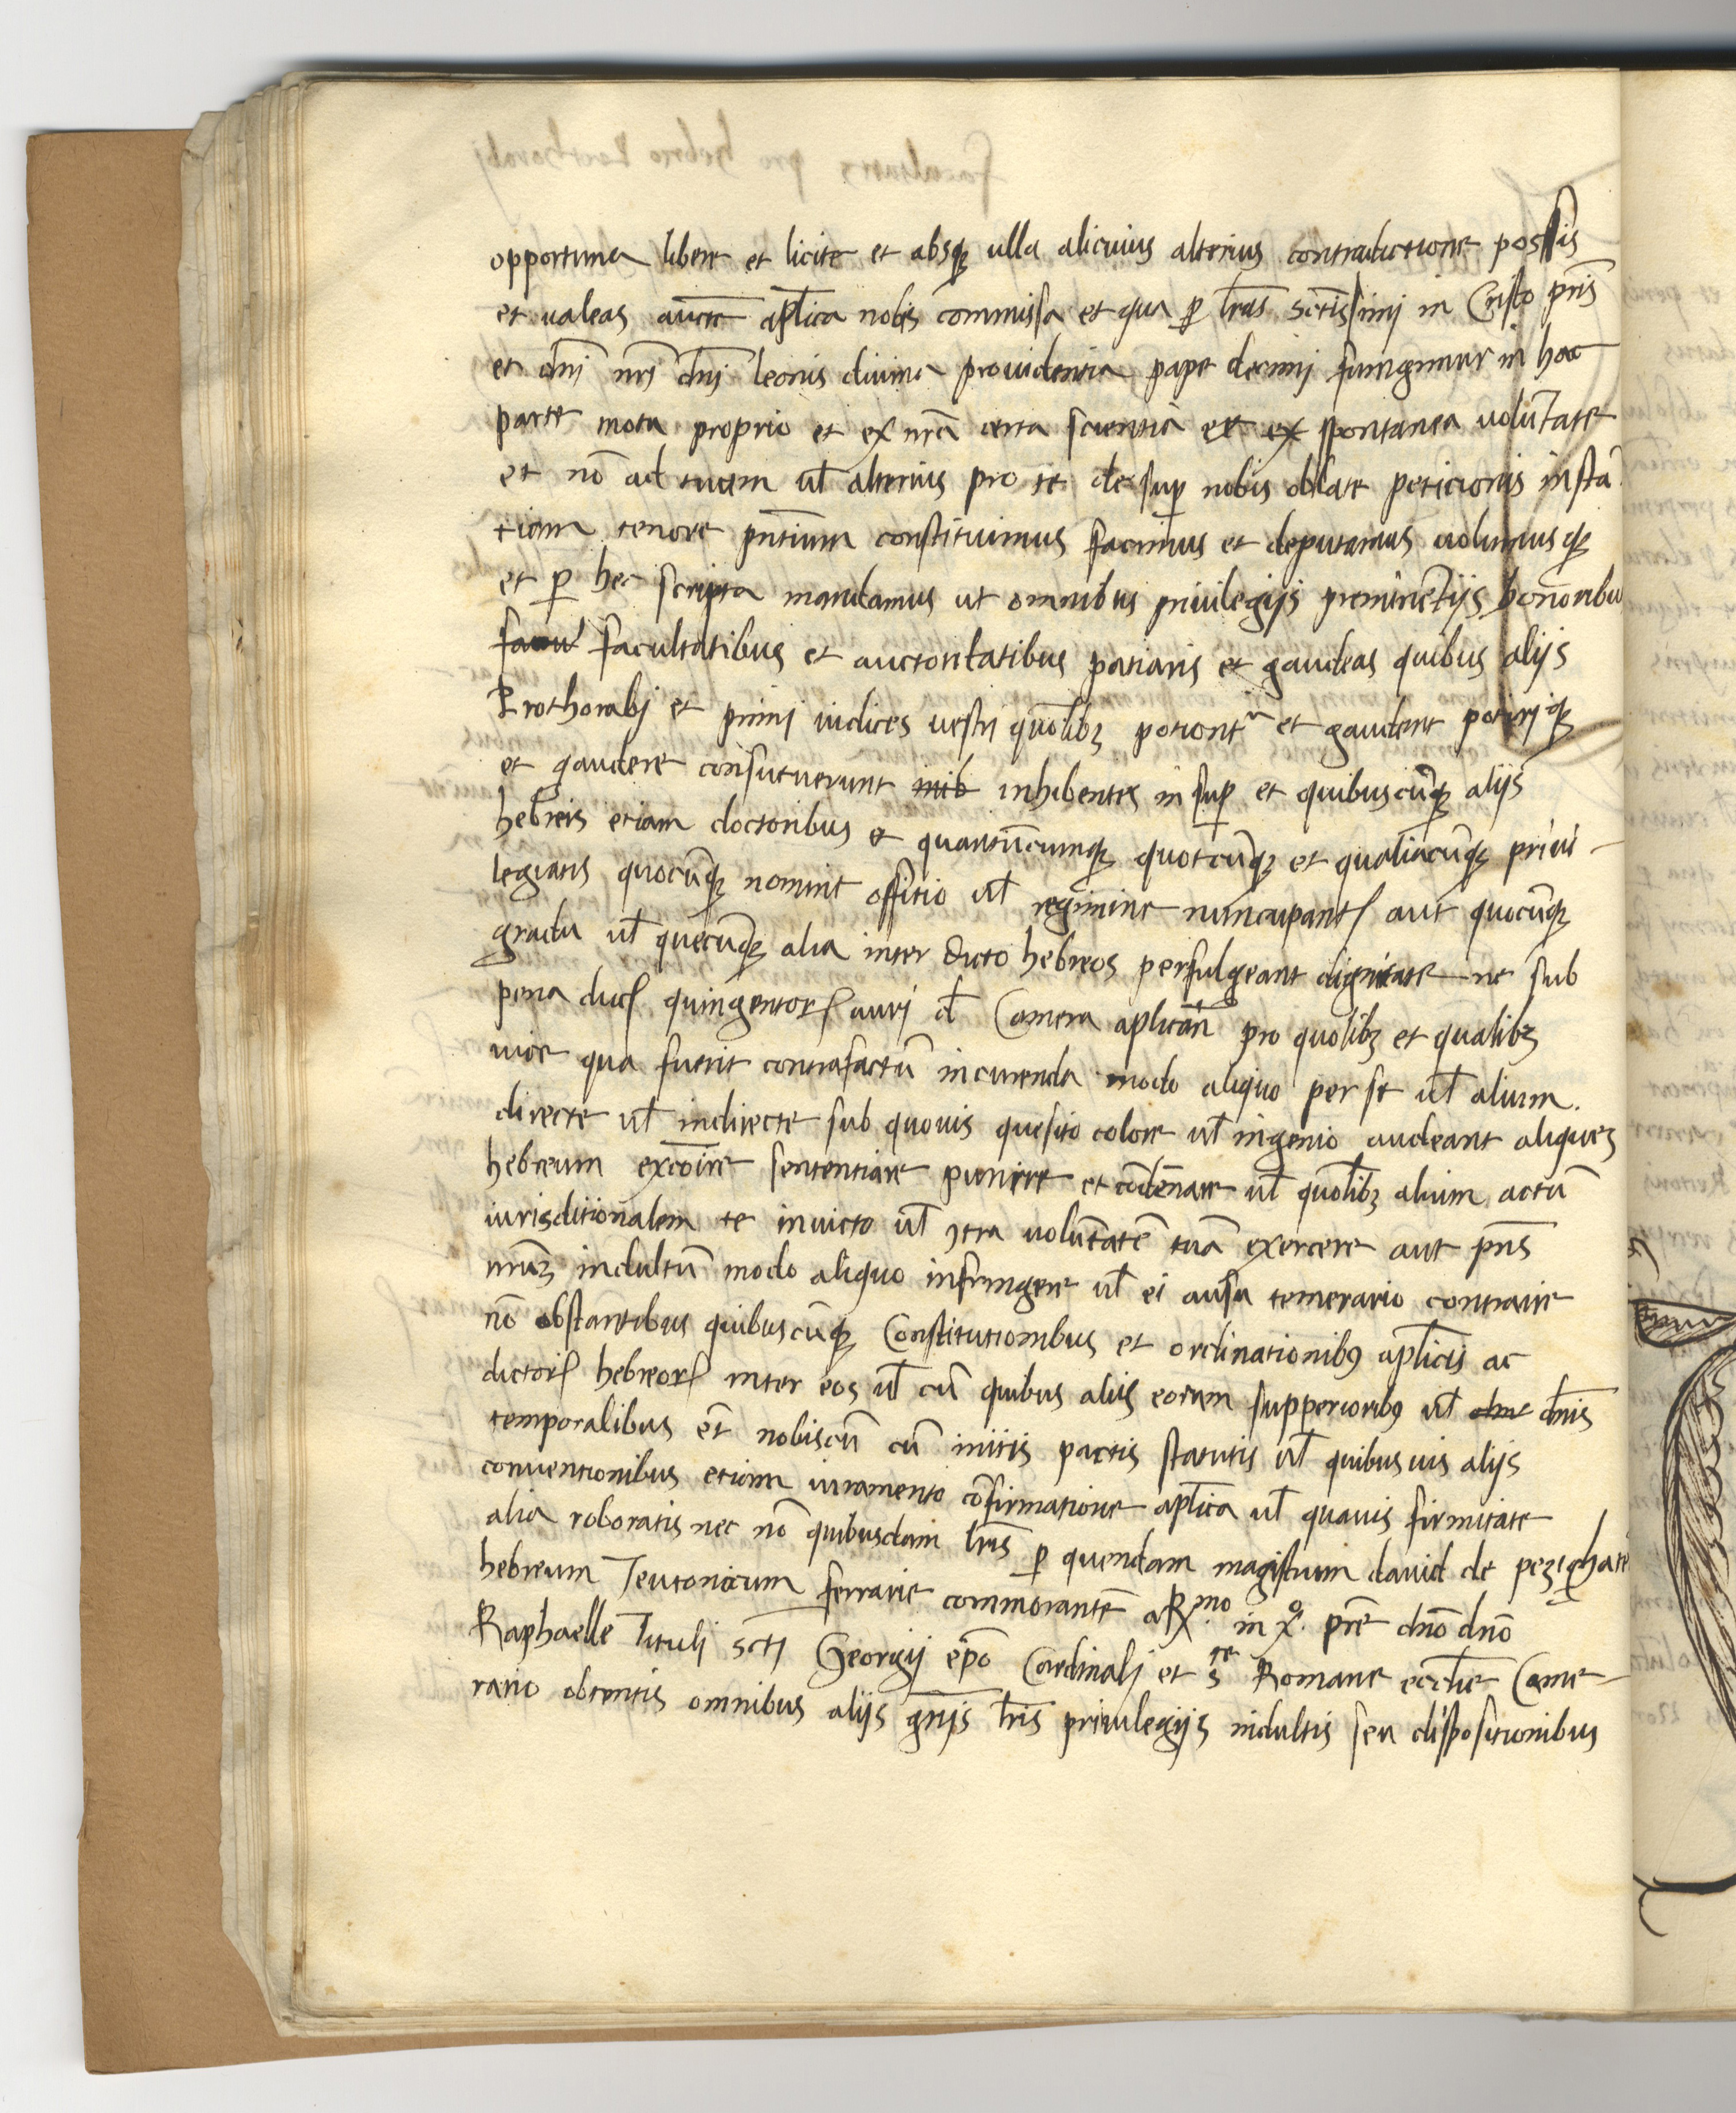 opportuna libere et licite et absq ulla alicuius alterius contradictione possis
et ualeas aucte aplica nobis commissa et qua p lras sctissimj in Cristo pris
et dnj nrj dnj leonis diuina prouidentia pape decimj fungimur in hac
parte motu proprio et ex nra certa scientia et ex spontanea voluntate
et nō ad tuam ul alterius pro te desup nobis oblate peticionis instā
tiam tenore pntium constituimus facimus et deputamus uolumusq
et p hec scripta mandamus ut omnibus priuilegijs preminētijs honoribu
facul facultatibus et auctoritatibus potiaris et gaudeas quibus alijs
Prothorabj et primj iudices vestri quolibȝ potiontr et gaudent potirjq
et gaudere consueuerunt inib inhibentes insup et quibuscūq alijs
hebreis etiam doctoribus et quantūcumq quotcūq et qualiacūq priui-
legiatis quocūq nomine offitio ul regimine nuncupant aut quocūq
gradu ul quecūq alia inter dicto hebreos perfulgeant dignitate ne sub
pena duc quingentor aurj d Camera aplicān pro quolibȝ et qualibȝ
uice qua fuerit contrafactū incurrenda modo aliquo per se ul alium.
directe ul indirecte sub quouis quesito colore ul ingenio audeant aliqueȝ
hebreum excōire sententiare punire et cōdēnare ul quolibȝ alium actū
iurisditionalem te inuicto ul ꝯtra volūtatē tuā exercere aut pns
nrūȝ indultū modo aliquo infringere ul ei ausu temerario contraire
nō obstantibus quibuscūq Constitutionibus et ordinationibꝰ aplicis ac
dictor hebreor inter eos ul cū quibus aliis eorum supperioribꝰ ul dnis
temporalibus ēt nobiscū cū initis pactis statutis ul quibusuis alijs
conuentionibus etiam iuramento cōfirmatione aplica ul quauis firmitate
alia roboratis nec nō quibusdam lris p quendam magistrum dauid de
hebreum Teutonicum ferrarie commorantē a Rmo in xo. prē dnō dnō
Raphaelle Tituli sctj Georgij epō Cardinalj et s re Romane ecctie Came-
rario obtentis omnibus alijs gnis lris priuilegijs indultis seu dispositionibus